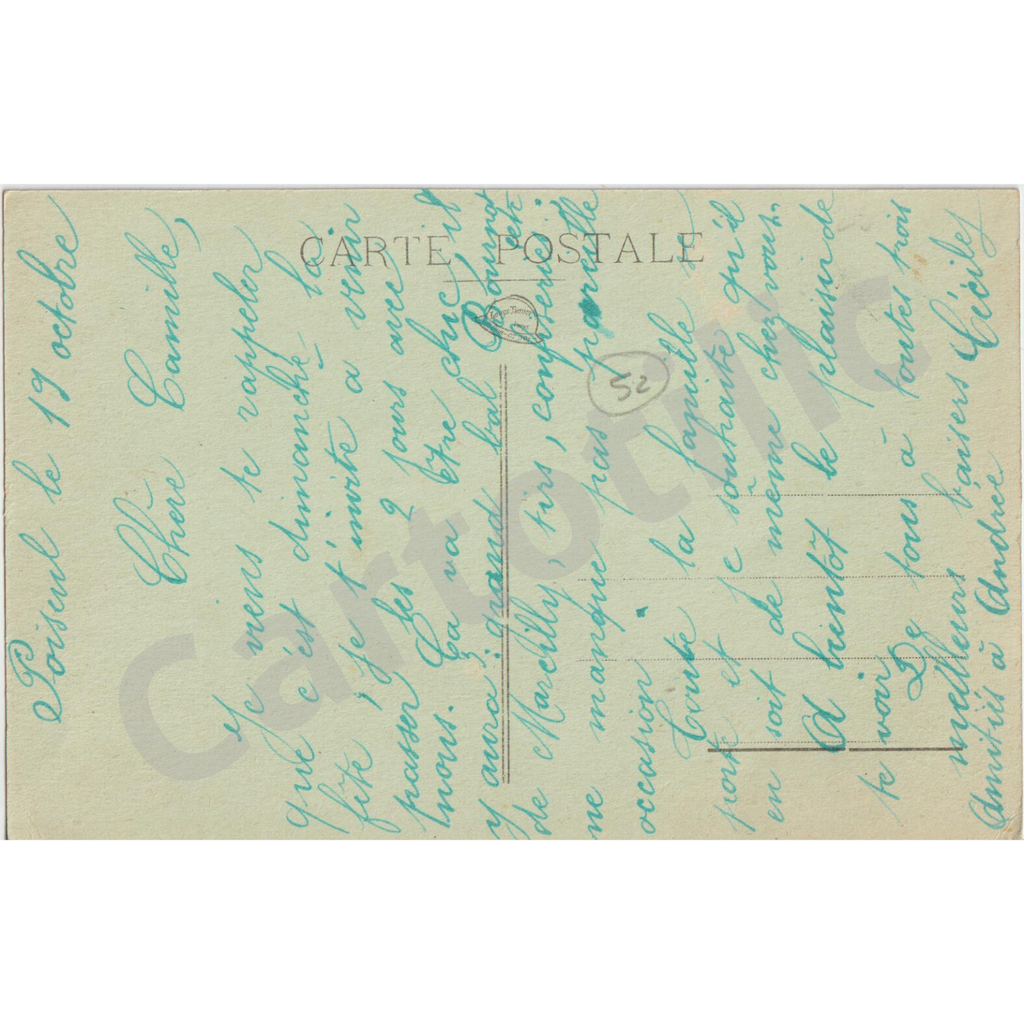 CARTE POSTALE
52
Poiseul le 19 octobre
Chère Camille,
Je viens te rappeler
que c'est dimanche la
fête, je t'invite à venir
passer les 2 jours avec
nous. Ça va être chic, il
y aura grand bal
de Marcilly, tirs, confiserie etc
ne manque pas pareille
occasion.
Toute la famille se
porte et je souhaite qu'il
en soit de même chez vous.
A bientôt le plaisir de
te voir.
De tous à toutes trois
meilleurs baisers Cécile
Amitiés à Andrée
Cartotilic